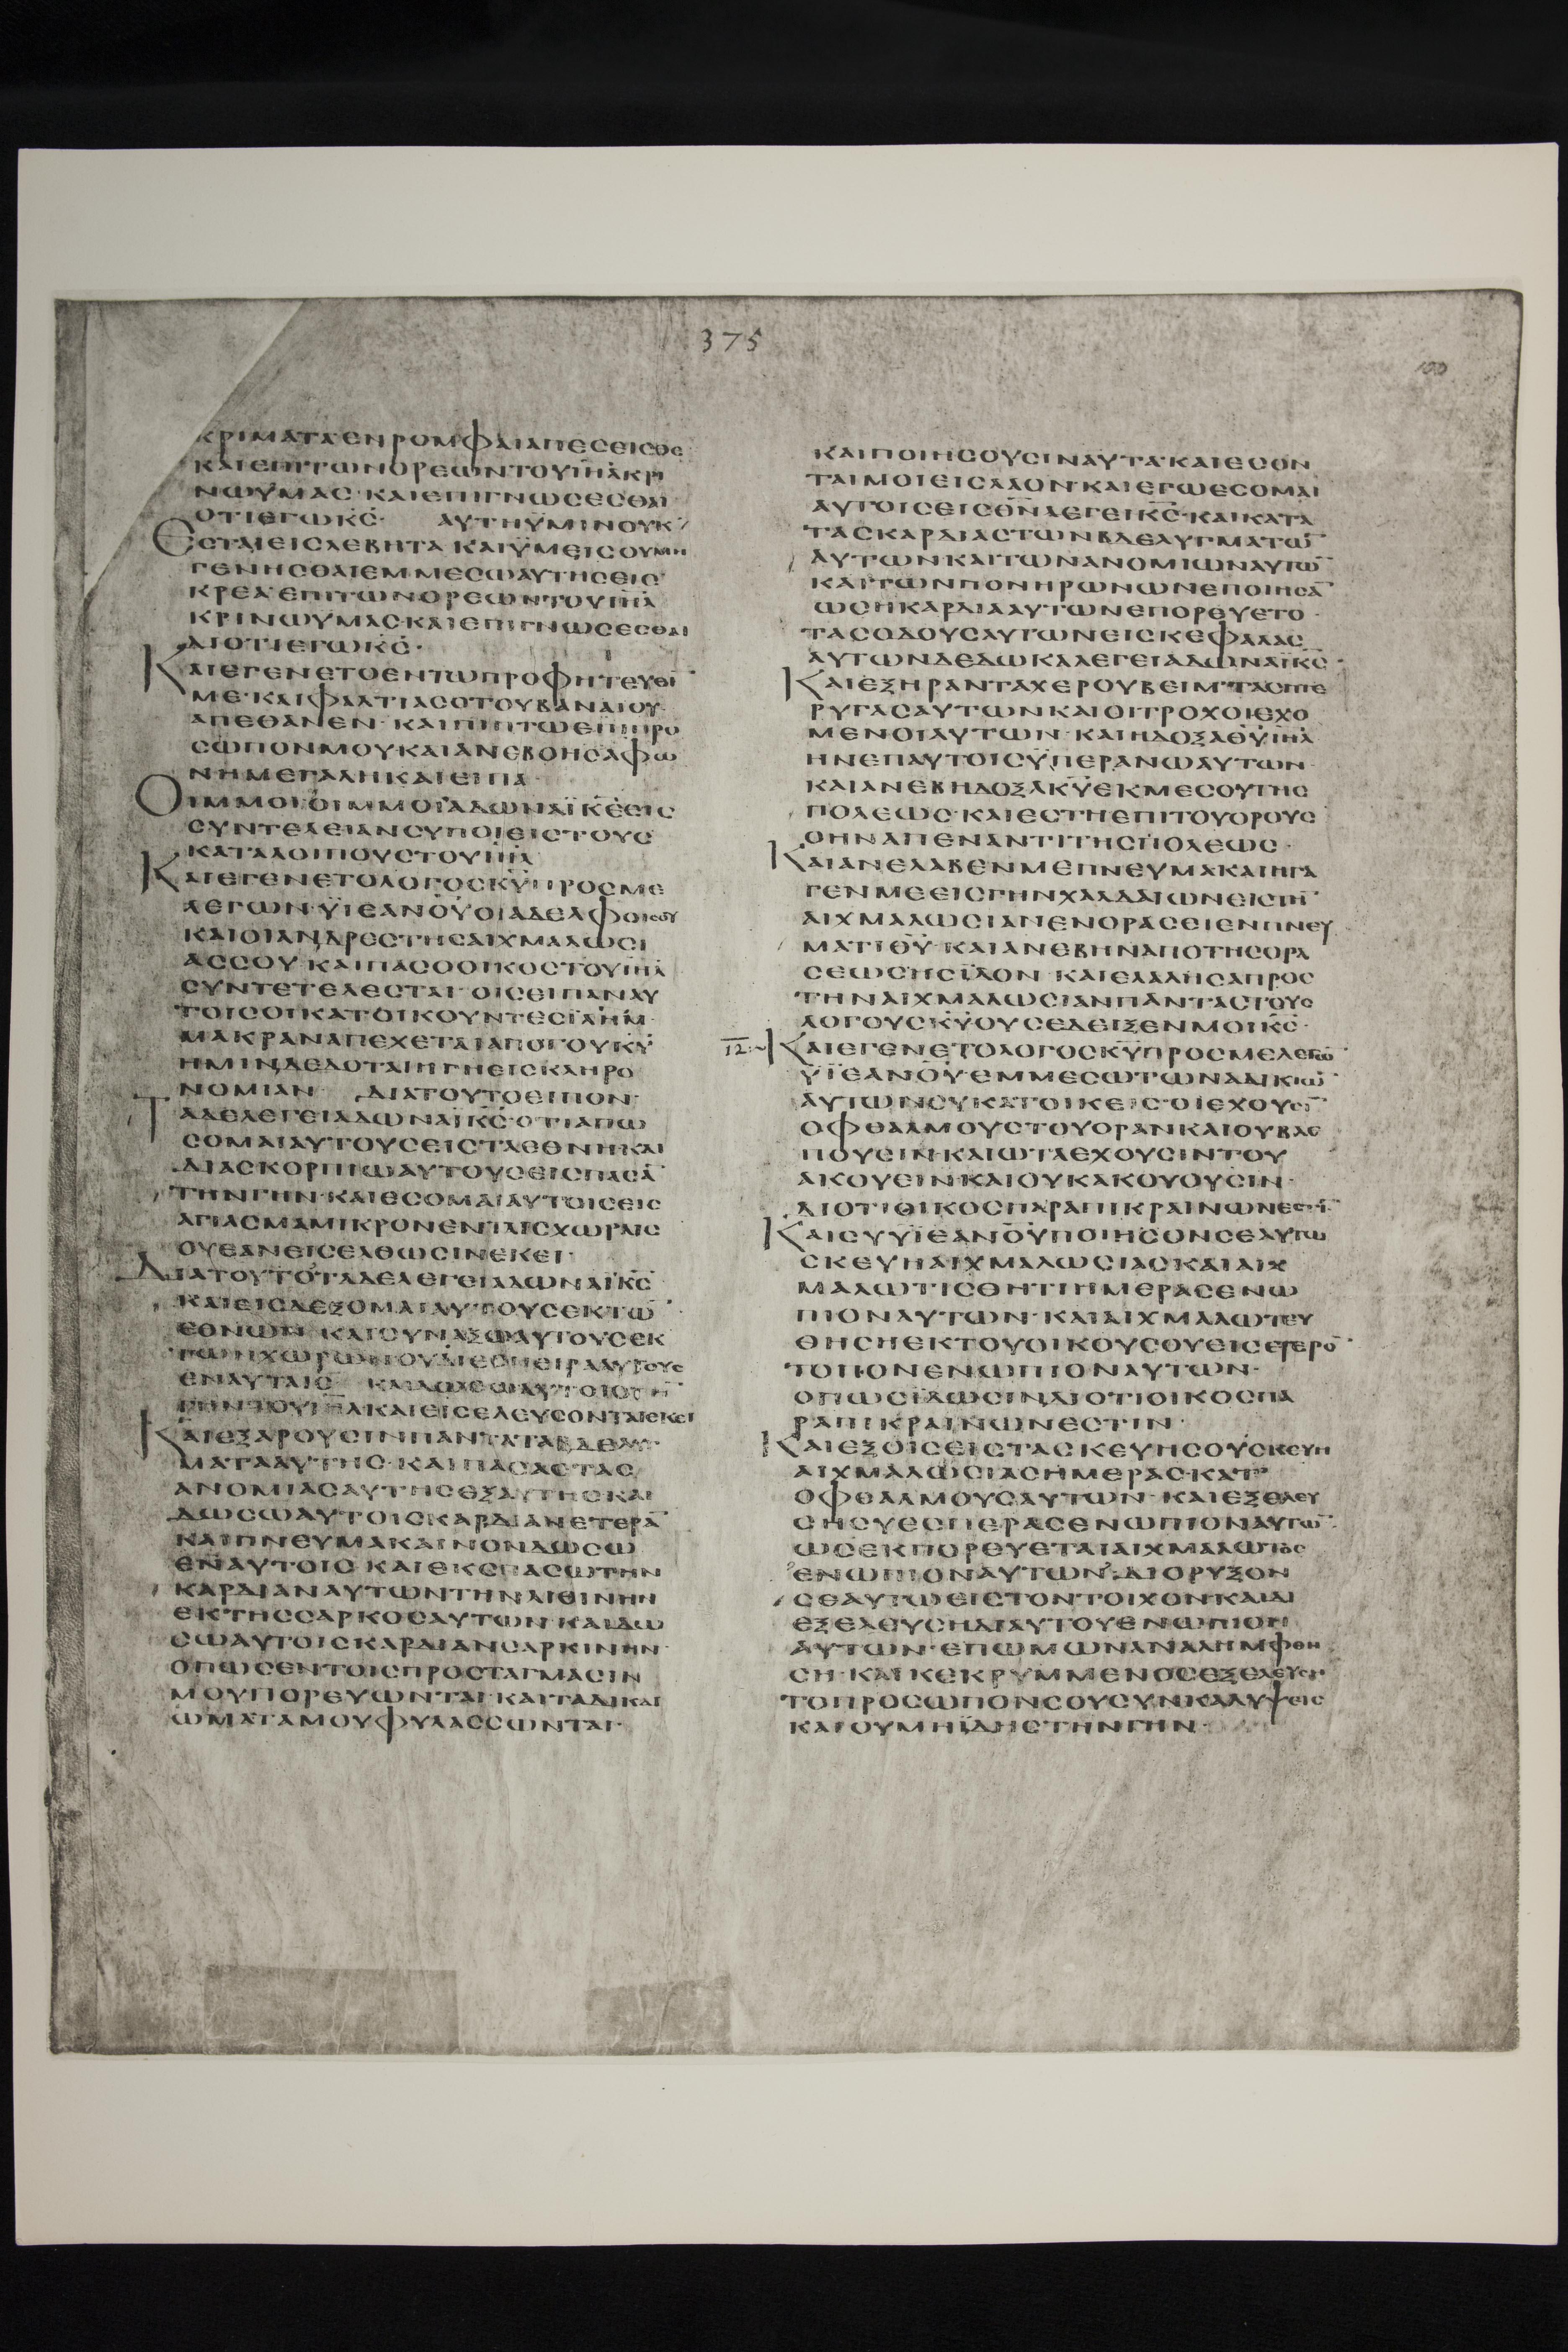 375
100
ΚΡΙΜΑΤΑΕΝΡΟΜΦΑΙΑΠΕΣΕΙΣΘΕ
ΚΑΙΕΠΙΤΩΝΟΡΕΩΝΤΟΥΙΗΛΚΡΙ
ΝΩΫΜΑΣ·ΚΑΙΕΠΙΓΝΩΣΕΣΘΑΙ
ΟΤΙΕΓΩΚΣ· ΑΥΤΗΫΜΙΝΟΥΚ
ΕΣΤΑΙΕΙΣΛΕΒΗΤΑ·ΚΑΙΫΜΕΙΣΟΥΜΗ
ΓΕΝΗΣΘΑΙΕΜΜΕΣΩΑΥΤΗΣΕΙΣ
ΚΡΕΑ·ΕΠΙΤΩΝΟΡΕΩΝΤΟΥΙΗΛ
ΚΡΙΝΩΥΜΑΣ·ΚΑΙΕΠΙΓΝΩΣΕΣΘΑΙ
ΔΙΟΤΙΕΓΩΚΣ·
ΚΑΙΕΓΕΝΕΤΟΕΝΤΩΠΡΟΦΗΤΕΥΕΙ
ΜΕ·ΚΑΙΦΑΛΤΙΑΣΟΤΟΥΒΑΝΑΙΟΥ
ΑΠΕΘΑΝΕΝ·ΚΑΙΠΙΠΤΩΕΠΙΠΡΟ
ΣΩΠΟΝΜΟΥΚΑΙΑΝΕΒΟΗΣΑΦΩ
ΝΗΜΕΓΑΛΗΚΑΙΕΙΠΑ·
ΟΙΜΜΟΙΟΙΜΜΟΙΑΔΩΝΑΪΚΕΕΙΣ
ΣΥΝΤΕΛΕΙΑΝΣΥΠΟΙΕΙΣΤΟΥΣ
ΚΑΤΑΛΟΙΠΟΥΣΤΟΥΙΗΛ
ΚΑΙΕΓΕΝΕΤΟΛΟΓΟΣΚΥΠΡΟΣΜΕ
ΛΕΓΩΝ·ΫΙΕΑΝΟΥΟΙΑΔΕΛΦΟΙΣΟΥ
ΚΑΙΟΙΑΝΔΡΕΣΤΗΣΑΙΧΜΑΛΩΣΙ
ΑΣΣΟΥ·ΚΑΙΠΑΣΟΟΙΚΟΣΤΟΥΙΗΛ
ΣΥΝΤΕΤΕΛΕΣΤΑΙ·ΟΙΣΕΙΠΑΝΑΥ
ΤΟΙΣΟΙΚΑΤΟΙΚΟΥΝΤΕΣΪΛΗΜ·
ΜΑΚΡΑΝΑΠΕΧΕΤΑΙΑΠΟΤΟΥΚΥ
ΗΜΙΝΔΕΔΟΤΑΙΗΓΗΕΙΣΚΛΗΡΟ
ΝΟΜΙΑΝ ΔΙΑΤΟΥΤΟΕΙΠΟΝ·
ΤΑΔΕΛΕΓΕΙΑΔΩΝΑΪΚΣ·ΟΤΙΑΠΩ
ΣΟΜΑΙΑΥΤΟΥΣΕΙΣΤΑΕΘΝΗΚΑΙ
ΔΙΑΣΚΟΡΠΙΩΑΥΤΟΥΣΕΙΣΠΑΣΑ¯
ΤΗΝΓΗΝ·ΚΑΙΕΣΟΜΑΙΑΥΤΟΙΣΕΙΣ
ΑΓΙΑΣΜΑΜΙΚΡΟΝΕΝΤΑΙΣΧΩΡΑΙΣ
ΟΥΕΑΝΕΙΣΕΛΘΩΣΙΝΕΚΕΙ·
ΔΙΑΤΟΥΤΟΤΑΔΕΛΕΓΕΙΑΔΩΝΑΪΚΣ
ΚΑΙΕΙΣΔΕΞΟΜΑΙΑΥΤΟΥΣΕΚΤΩ¯
ΕΘΝΩΝ·ΚΑΙΣΥΝΑΞΩΑΥΤΟΥΣΕΚ
ΤΩΝΧΩΡΩΝΟΥΔΙΕΣΠΕΙΡΑΑΥΤΟΥΣ
ΕΝΑΥΤΑΙΣ ΚΑΙΔΩΣΩΑΥΤΟΙΣΤΗ¯
ΓΗΝΤΟΥΙΗΛΚΑΙΕΙΣΕΛΕΥΣΟΝΤΑΙΕΚΕΙ
ΚΑΙΕΞΑΡΟΥΣΙΝΠΑΝΤΑΤΑΒΔΕΛΥΓ
ΜΑΤΑΑΥΤΗΣ·ΚΑΙΠΑΣΑΣΤΑΣ
ΑΝΟΜΙΑΣΑΥΤΗΣΕΞΑΥΤΗΣΚΑΙ
ΔΩΣΩΑΥΤΟΙΣΚΑΡΔΙΑΝΕΤΕΡΑ¯
ΚΑΙΠΝΕΥΜΑΚΑΙΝΟΝΔΩΣΩ
ΕΝΑΥΤΟΙΣ·ΚΑΙΕΚΣΠΑΣΩΤΗΝ
ΚΑΡΔΙΑΝΑΥΤΩΝΤΗΝΛΙΘΙΝΗΝ
ΕΚΤΗΣΣΑΡΚΟΣΑΥΤΩΝ·ΚΑΙΔΩ
ΣΩΑΥΤΟΙΣΚΑΡΔΙΑΝΣΑΡΚΙΝΗΝ·
ΟΠΩΣΕΝΤΟΙΣΠΡΟΣΤΑΓΜΑΣΙΝ
ΜΟΥΠΟΡΕΥΩΝΤΑΙ·ΚΑΙΤΑΔΙΚΑΙ
ΩΜΑΤΑΜΟΥΦΥΛΑΣΣΩΝΤΑΙ·
ΚΑΙΠΟΙΗΣΟΥΣΙΝΑΥΤΑ·ΚΑΙΕΣΟΝ
ΤΑΙΜΟΙΕΙΣΛΑΟΝ·ΚΑΙΕΓΩΕΣΟΜΑΙ
ΑΥΤΟΙΣΕΙΣΘΝΛΕΓΕΙΚΣ·ΚΑΙΚΑΤΑ
ΤΑΣΚΑΡΔΙΑΣΤΩΝΒΔΕΛΥΓΜΑΤΩ¯
ΑΥΤΩΝΚΑΙΤΩΝΑΝΟΜΙΩΝΑΥΤΩ¯
ΚΑΙΤΩΝΠΟΝΗΡΩΝΩΝΕΠΟΙΗΣΑ¯
ΩΣΗΚΑΡΔΙΑΑΥΤΩΝΕΠΟΡΕΥΕΤΟ·
ΤΑΣΟΔΟΥΣΑΥΤΩΝΕΙΣΚΕΦΑΛΑΣ
ΑΥΤΩΝΔΕΔΩΚΑΛΕΓΕΙΑΔΩΝΑΪΚΣ·
ΚΑΙΕΞΗΡΑΝΤΑΧΕΡΟΥΒΕΙΜ·ΤΑΣΠΤΕ
ΡΥΓΑΣΑΥΤΩΝΚΑΙΟΙΤΡΟΧΟΙΕΧΟ
ΜΕΝΟΙΑΥΤΩΝ·ΚΑΙΗΔΟΞΑΘΥΙΗΛ
ΗΝΕΠΑΥΤΟΙΣΫΠΕΡΑΝΩΑΥΤΩΝ·
ΚΑΙΑΝΕΒΗΔΟΞΑΚΥΕΚΜΕΣΟΥΤΗΣ
ΠΟΛΕΩΣ·ΚΑΙΕΣΤΗΕΠΙΤΟΥΟΡΟΥΣ
ΟΗΝΑΠΕΝΑΝΤΙΤΗΣΠΟΛΕΩΣ·
ΚΑΙΑΝΕΛΑΒΕΝΜΕΠΝΕΥΜΑΚΑΙΗΓΑ
ΓΕΝΜΕΕΙΣΓΗΝΧΑΛΔΑΙΩΝΕΙΣΤΗ¯
ΑΙΧΜΑΛΩΣΙΑΝΕΝΟΡΑΣΕΙΕΝΠΝΕΥ
ΜΑΤΙΘΥ·ΚΑΙΑΝΕΒΗΝΑΠΟΤΗΣΟΡΑ
ΣΕΩΣΗΣΪΔΟΝ·ΚΑΙΕΛΑΛΗΣΑΠΡΟΣ
ΤΗΝΑΙΧΜΑΛΩΣΙΑΝΠΑΝΤΑΣΤΟΥΣ
ΛΟΓΟΥΣΚΥΟΥΣΕΔΕΙΞΕΝΜΟΙΚΣ·
12 ΚΑΙΕΓΕΝΕΤΟΛΟΓΟΣΚΥΠΡΟΣΜΕΛΕΓΩ¯
ΫΙΕΑΝΟΥ·ΕΜΜΕΣΩΤΩΝΑΔΙΚΙΩ¯
ΑΥΤΩΝΣΥΚΑΤΟΙΚΕΙΣ·ΟΙΕΧΟΥΣΙ¯
ΟΦΘΑΛΜΟΥΣΤΟΥΟΡΑΝΚΑΙΟΥΒΛΕ
ΠΟΥΣΙΝ·ΚΑΙΩΤΑΕΧΟΥΣΙΝΤΟΥ
ΑΚΟΥΕΙΝΚΑΙΟΥΚΑΚΟΥΟΥΣΙΝ·
ΔΙΟΤΙΟΙΚΟΣΠΑΡΑΠΙΚΡΑΙΝΩΝΕΣΤΙ¯
ΚΑΙΣΥΫΙΕΑΝΟΥΠΟΙΗΣΟΝΣΕΑΥΤΩ
ΣΚΕΥΗΑΙΧΜΑΛΩΣΙΑΣΚΑΙΑΙΧ
ΜΑΛΩΤΙΣΘΗΤΙΗΜΕΡΑΣΕΝΩ
ΠΙΟΝΑΥΤΩΝ·ΚΑΙΑΙΧΜΑΛΩΤΕΥ
ΘΗΣΗΕΚΤΟΥΟΙΚΟΥΣΟΥΕΙΣΕΤΕΡΟ¯
ΤΟΠΟΝΕΝΩΠΙΟΝΑΥΤΩΝ·
ΟΠΩΣΪΔΩΣΙΝΔΙΟΤΙΟΙΚΟΣΠΑ
ΡΑΠΙΚΡΑΙΝΩΝΕΣΤΙΝ·
ΚΑΙΕΞΟΙΣΕΙΣΤΑΣΚΕΥΗΣΟΥΣΚΕΥΗ
ΑΙΧΜΑΛΩΣΙΑΣΗΜΕΡΑΣ·ΚΑΤ
ΟΦΘΑΛΜΟΥΣΑΥΤΩΝ·ΚΑΙΕΞΕΛΕΥ
ΣΗΣΥΕΣΠΕΡΑΣΕΝΩΠΙΟΝΑΥΤΩ¯·
ΩΣΕΚΠΟΡΕΥΕΤΑΙΑΙΧΜΑΛΩΤΟΣ
ΕΝΩΠΙΟΝΑΥΤΩΝ·ΔΙΟΡΥΞΟΝ
ΣΕΑΥΤΩΕΙΣΤΟΝΤΟΙΧΟΝΚΑΙΔΙ
ΕΞΕΛΕΥΣΗΔΙΑΥΤΟΥΕΝΩΠΙΟΝ
ΑΥΤΩΝ·ΕΠΩΜΩΝΑΝΑΛΗΜΦΘΗ
ΣΗ·ΚΑΙΚΕΚΡΥΜΜΕΝΟΣΕΞΕΛΕΥΣΗ
ΤΟΠΡΟΣΩΠΟΝΣΟΥΣΥΝΚΑΛΥΨΕΙΣ
ΚΑΙΟΥΜΗΪΔΗΣΤΗΝΓΗΝ·